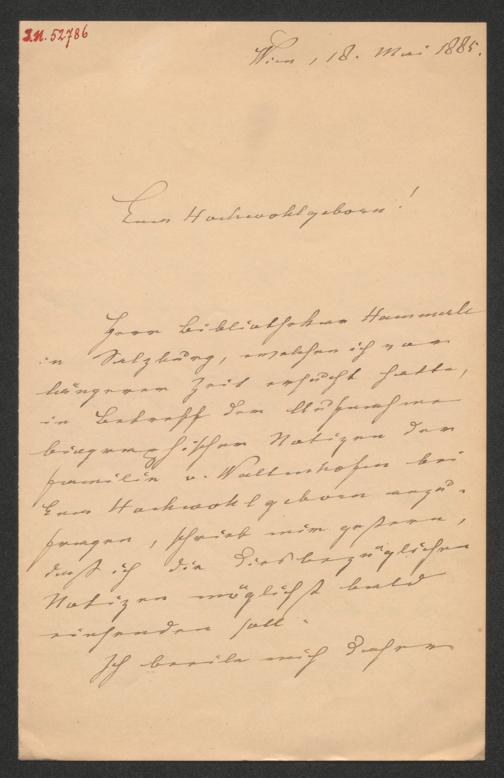 I.N. 52786
Wien, 18. Mai 1885.
Euer Hochwohlgeboren!
Herr Bibliothekar Hammerle
in Salzburg, welchen ich vor
längerer Zeit ersucht hatte,
in Betreff der Aufnahme
biographischer Notizen der
Familie v. Waltenhofen bei
Euer Hochwohlgeboren anzu-
fragen, schrieb mir gestern,
daß ich die diesbezüglichen
Notizen möglichst bald
einsenden soll.
Ich beeile mich daher